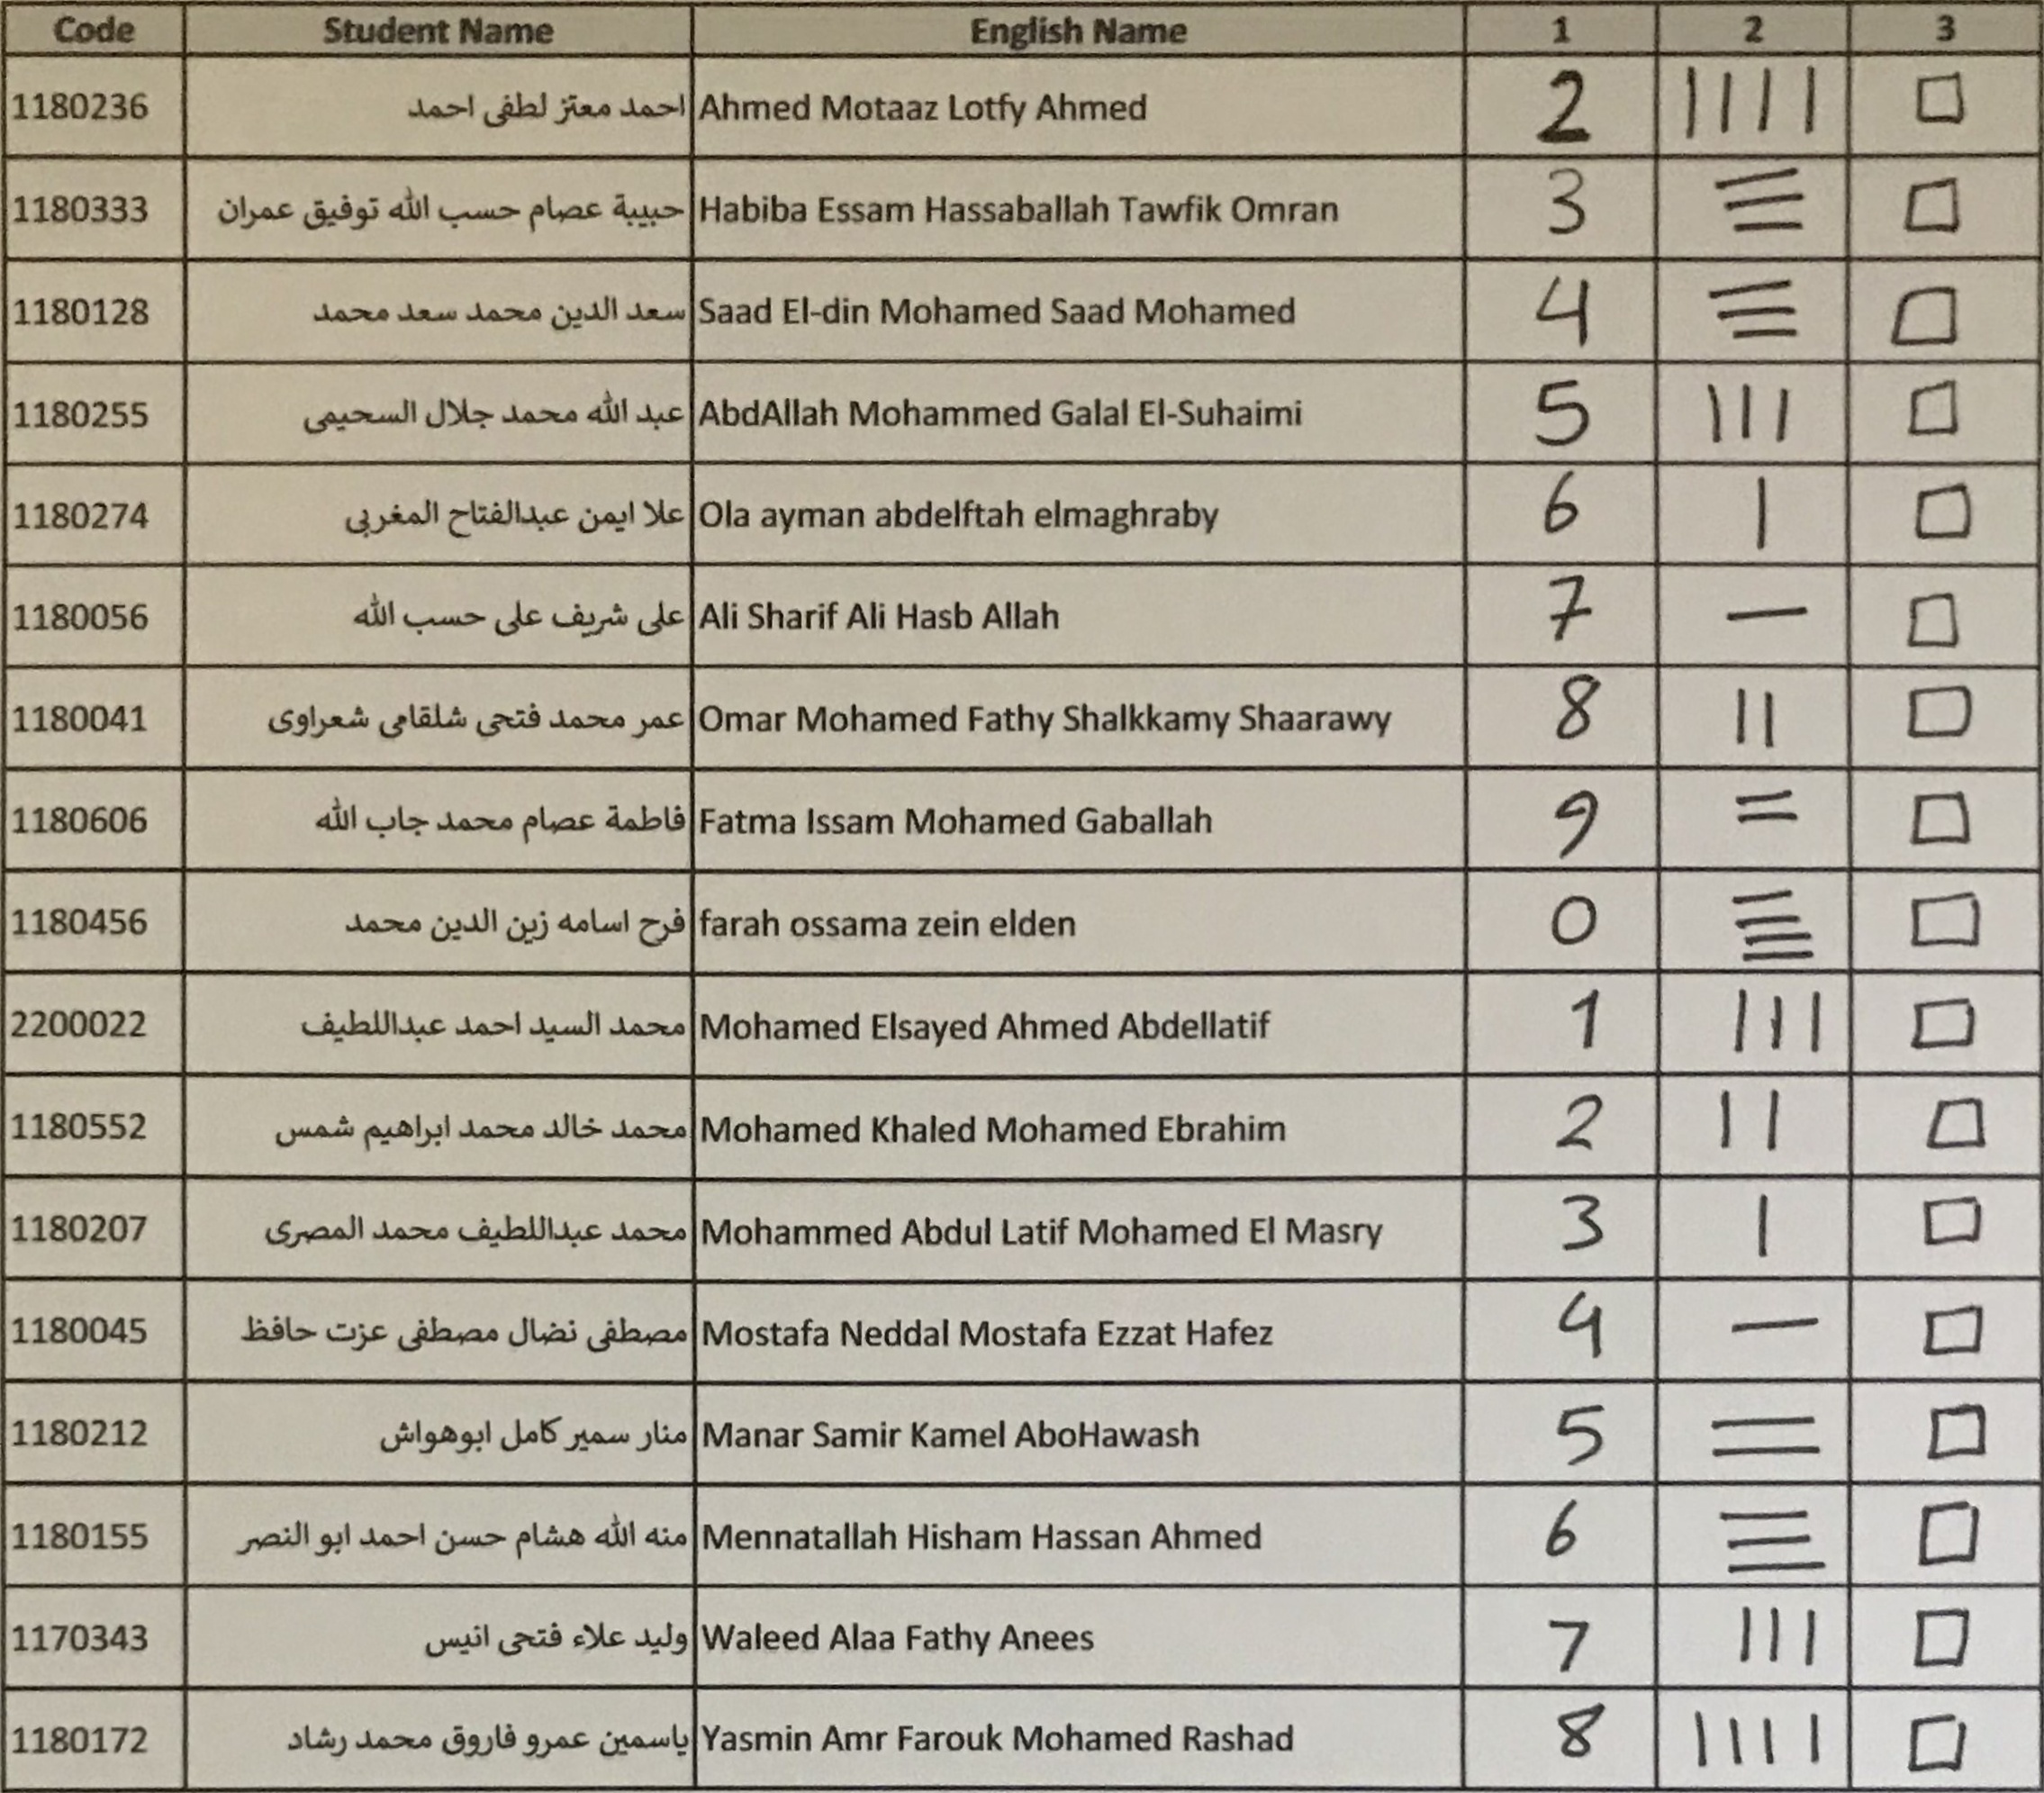 Code Student Name English Name 1 2 3
1180236 احمد معتز لطفى احمد Ahmed Motaaz Lotfy Ahmed 2 |||| □
1180333 حبيبة عصام حسب الله توفيق عمران Habiba Essam Hassaballah Tawfik Omran 3 ☰ □
1180128 سعد الدين محمد سعد محمد Saad El-din Mohamed Saad Mohamed 4 ☰ □
1180255 عبد الله محمد جلال السحيمى AbdAllah Mohammed Galal El-Suhaimi 5 ||| □
1180274 علا ايمن عبدالفتاح المغربى Ola ayman abdelftah elmaghraby 6 | □
1180056 على شريف على حسب الله Ali Sharif Ali Hasb Allah 7 — □
1180041 عمر محمد فتحى شلقامى شعراوى Omar Mohamed Fathy Shalkkamy Shaarawy 8 || □
1180606 فاطمة عصام محمد جاب الله Fatma Issam Mohamed Gaballah 9 = □
1180456 فرح اسامه زين الدين محمد farah ossama zein elden 0 ≣ □
2200022 محمد السيد احمد عبداللطيف Mohamed Elsayed Ahmed Abdellatif 1 ||| □
1180552 محمد خالد محمد ابراهيم شمس Mohamed Khaled Mohamed Ebrahim 2 || □
1180207 محمد عبداللطيف محمد المصرى Mohammed Abdul Latif Mohamed El Masry 3 | □
1180045 مصطفى نضال مصطفى عزت حافظ Mostafa Neddal Mostafa Ezzat Hafez 4 — □
1180212 منار سمير كامل ابوهواش Manar Samir Kamel AboHawash 5 = □
1180155 منه الله هشام حسن احمد ابو النصر Mennatallah Hisham Hassan Ahmed 6 ☰ □
1170343 وليد علاء فتحى انيس Waleed Alaa Fathy Anees 7 ||| □
1180172 ياسمين عمرو فاروق محمد رشاد Yasmin Amr Farouk Mohamed Rashad 8 |||| □